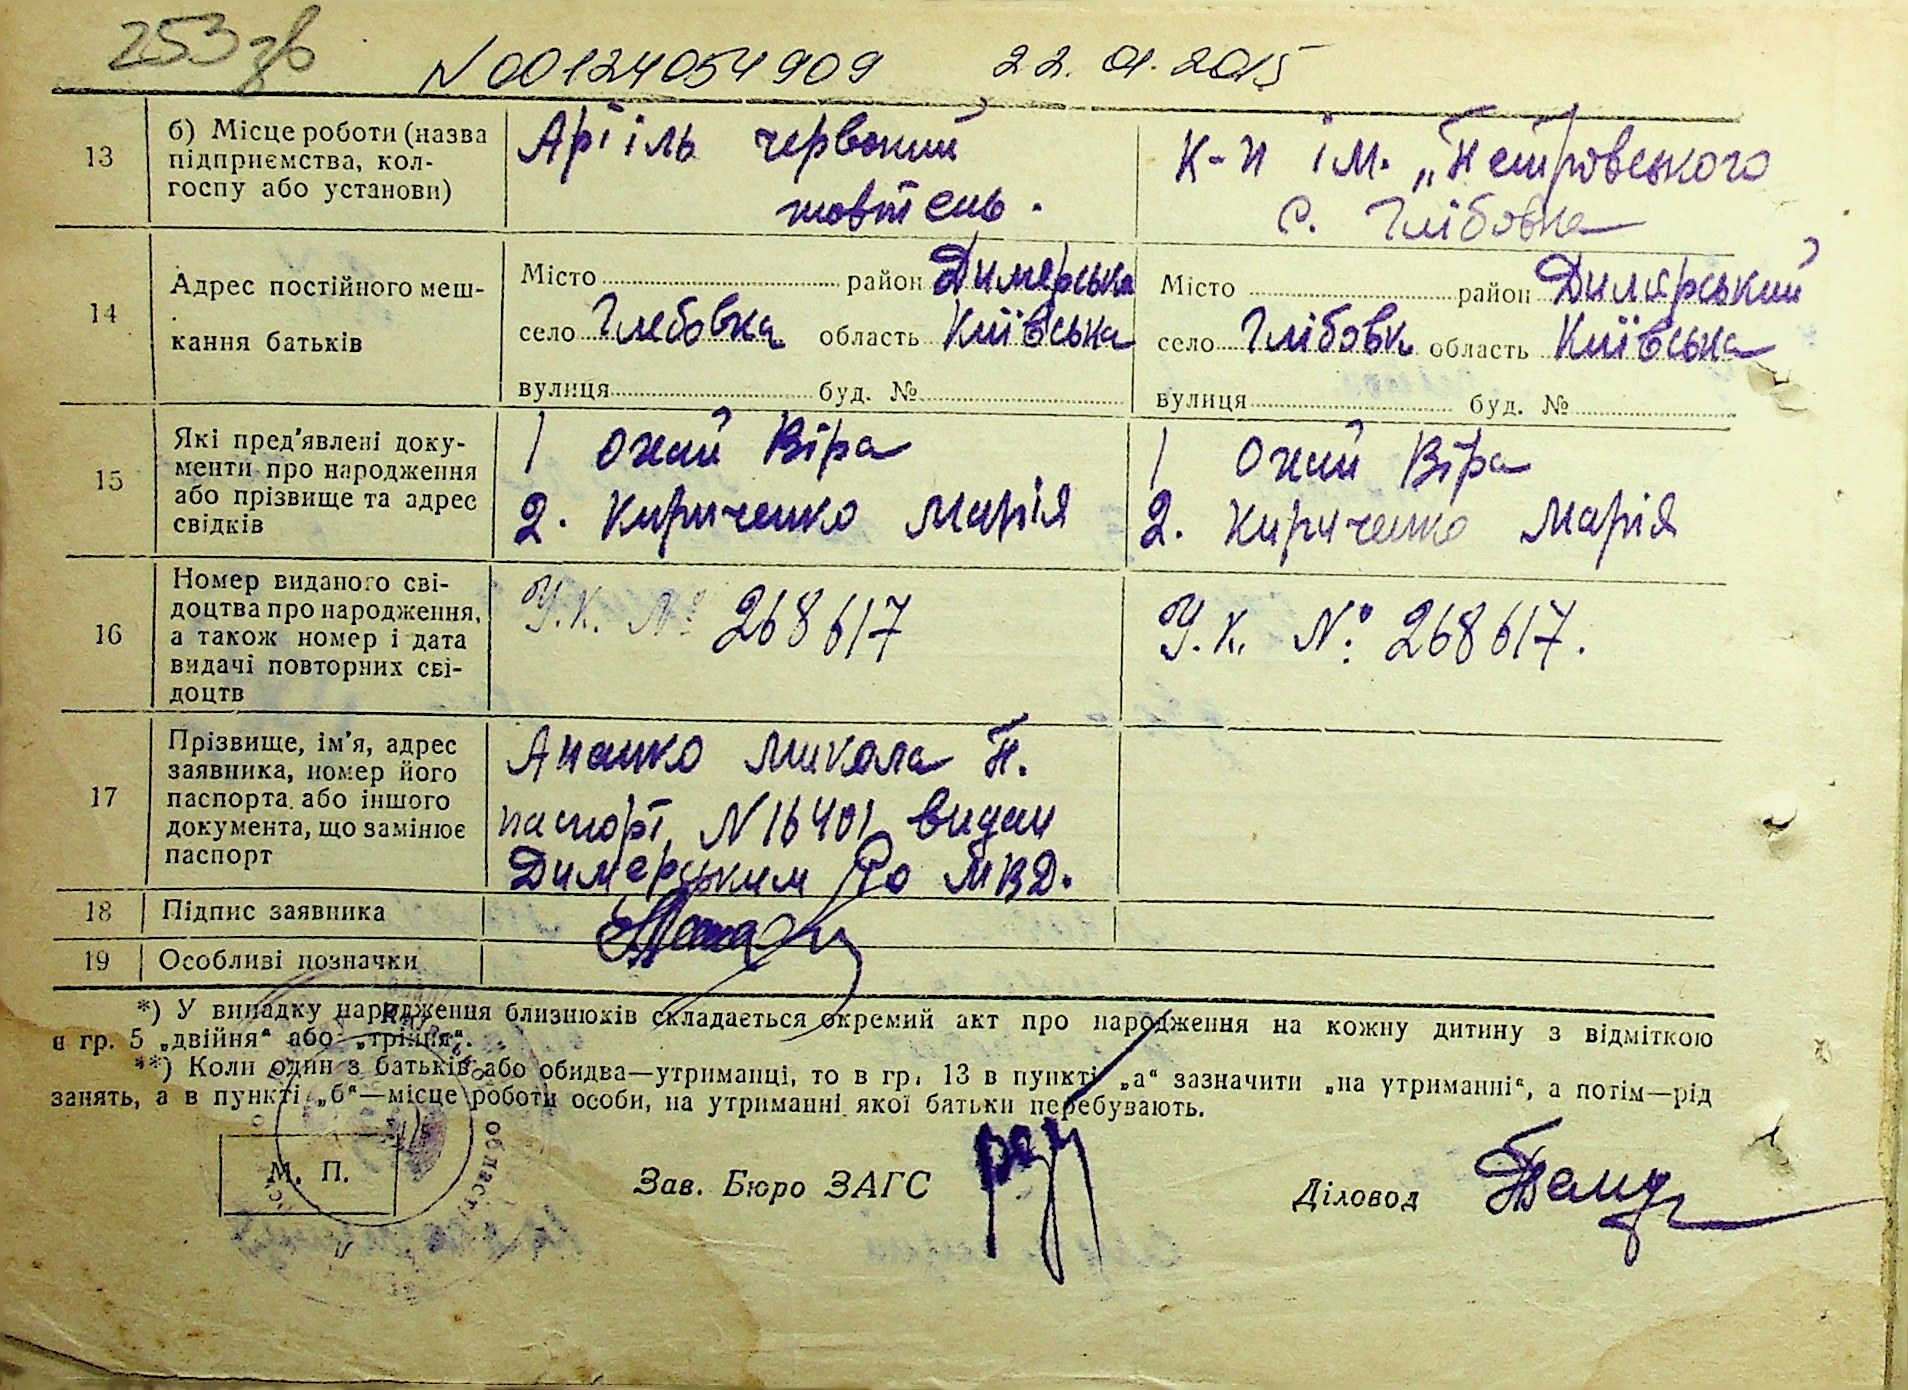 253 зв
N00124054909 22.01.2015
13 б) Місце роботи (назва підприємства, колгоспу або установи)
Артіль червоний жовтень.
К-п ім. „Петровського
с. Глібовка
14 Адрес постійного мешкання батьків
Місто район Димерська
село Глебовка область Київська
вулиця буд. №
Місто район Димерський
село Глібовк область Київська
вулиця буд. №
15 Які пред'явлені документи про народження або прізвище та адрес свідків
1 Віра
2. Кириченко Марія
1 Віра
2. Кириченко Марія
16 Номер виданого свідоцтва про народження, а також номер і дата видачі повторних свідоцтв
У.К. №: 268617
У.К. №: 268617.
17 Прізвище, ім'я, адрес заявника, номер його паспорта або іншого документа, що замінює паспорт
Микола П.
паспорт N16401 видан
Димерським РО МВД.
18 Підпис заявника
19 Особливі позначки
*) У випадку народження близнюків складається окремий акт про народження на кожну дитину з відміткою
в гр. 5 „двійня“ або „трійня“.
**) Коли один з батьків або обидва—утриманці, то в гр. 13 в пункті „а“ зазначити „на утриманні“, а потім—рід
занять, а в пункті „б“—місце роботи особи, на утриманні якої батьки перебувають.
М. П.
Зав. Бюро ЗАГС
Діловод